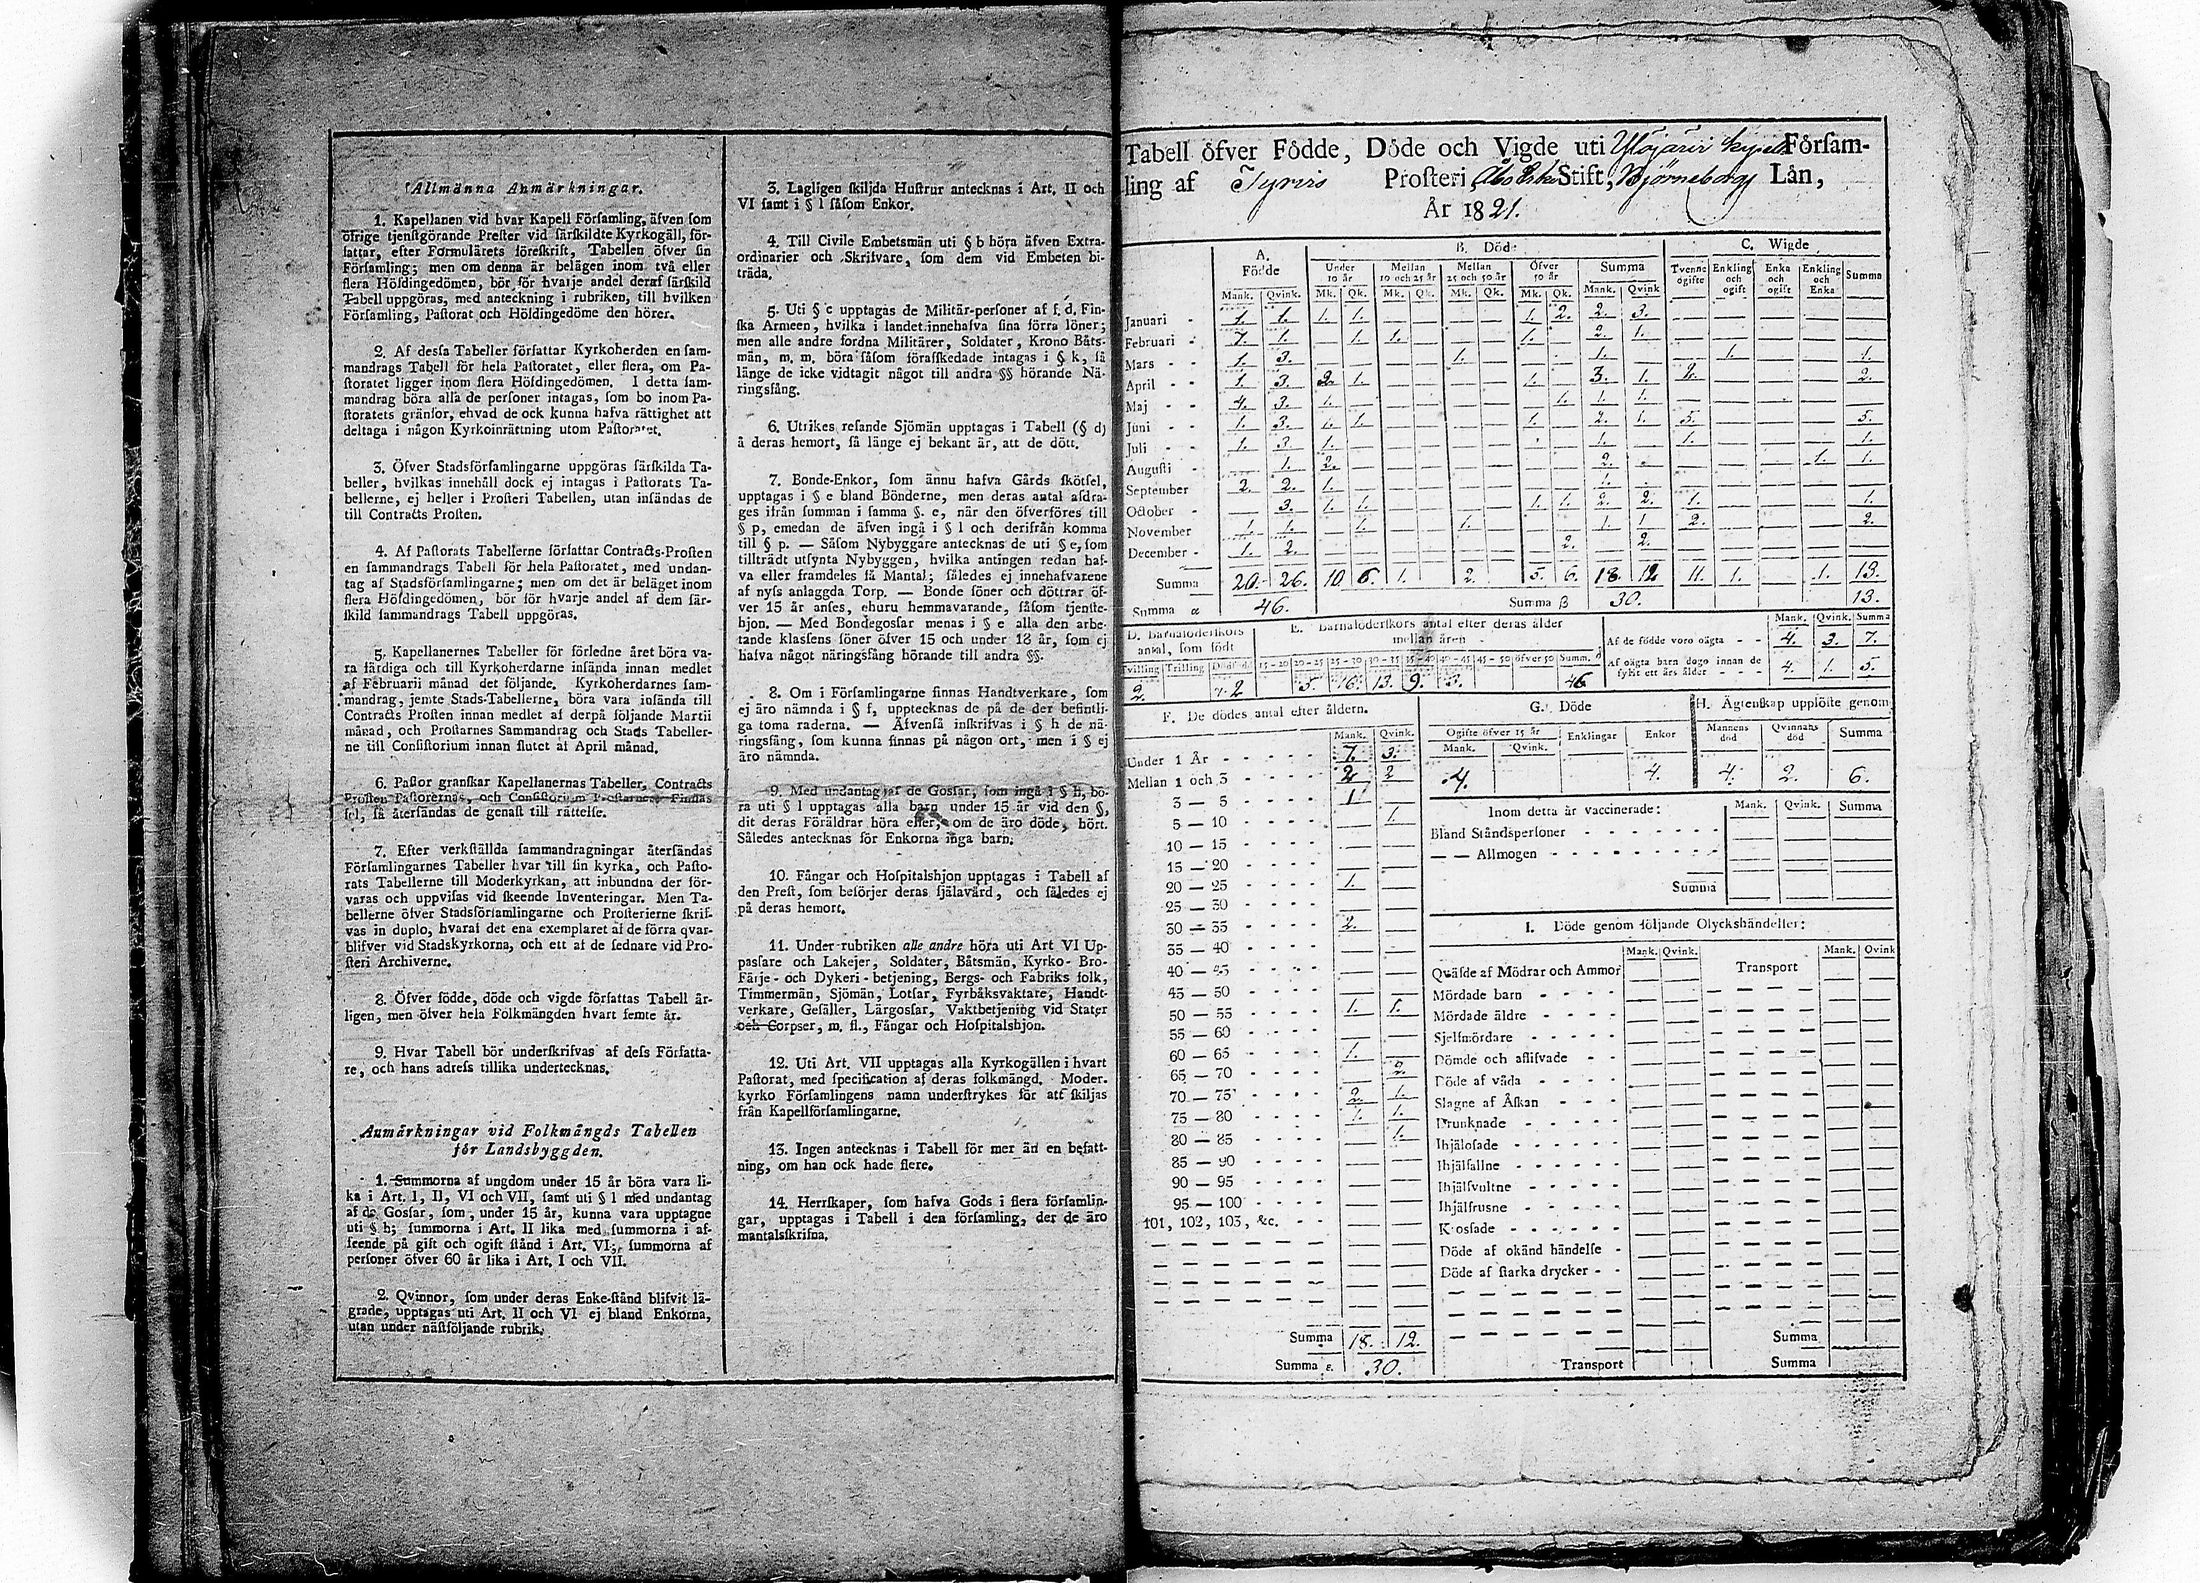 Allmänna Anmärkningar.
1. Kapellanen vid hvar Kapell Församling, äfven som
öfrige tjenstgörande Prester vid särskildte Kyrkogäll, för-
fattar, efter Formulärets föreskrift, Tabellen öfver sin
Församling; men om denna är belägen inom två eller
flera Höfdingedömen, bör för hvarje andel deraf särskild
Tabell uppgöras, med anteckning i rubriken, till hvilken
Församling, Pastorat och Höfdingedöme den hörer.
2. Af dessa Tabeller författar Kyrkoherden en sam-
mandrags Tabell för hela Pastoratet, eller flera, om Pa-
storatet ligger inom flera Höfdingedömen. I detta sam-
mandrag böra alla de personer intagas, som bo inom Pa-
storatets gränsor, ehvad de ock kunna hafva rättighet att
deltaga i någon Kyrkoinrättning utom Pastoratet.
3. Öfver Stadsförsamlingarne uppgöras särskilda Ta-
beller, hvilkas innehåll dock ej intagas i Pastorats Ta-
bellerne, ej heller i Prosteri Tabellen, utan insändas de
till Contracts Prosten.
4. Af Pastorats Tabellerne författar Contracts-Prosten
en sammandrags Tabell för hela Pastoratet, med undan-
tag af Stadsförsamlingarne; men om det är beläget inom
flera Höfdingedömen, bör för hvarje andel af dem sär-
skild sammandrags Tabell uppgöras.
5. Kapellanernes Tabeller för förledne året böra va-
ra färdiga och till Kyrkoherdarne insända innan medlet
af Februarii månad det följande. Kyrkoherdarnes sam-
mandrag, jemte Stads-Tabellerne, böra vara insända till
Contracts Prosten innan medlet af derpå följande Martii
månad, och Prostarnes Sammandrag och Stads Tabeller-
ne till Consistorium innan slutet af April månad.
6. Pastor granskar Kapellanernas Tabeller, Contracts
Prosten Pastorernas, och Consistorium Prostarnes. Finnas
fel, så återsändas de genast till rättelse.
7. Efter verkställda sammandragningar återsändas
Församlingarnes Tabeller hvar till sin kyrka, och Pasto-
rats Tabellerne till Moderkyrkan, att inbundna der för-
varas och uppvisas vid skeende Inventeringar. Men Ta-
bellerne öfver Stadsförsamlingarne och Prosterierne skrif-
vas in duplo, hvaraf det ena exemplaret af de förra qvar-
blifver vid Stadskyrkorna, och ett af de sednare vid Pro-
steri Archiverne.
8. Öfver födde, döde och vigde författas Tabell år-
ligen, men öfver hela Folkmängden hvart femte år.
9. Hvar Tabell bör underskrifvas af dess Författa-
re, och hans adress tillika undertecknas.
Anmärkningar vid Folkmängds Tabellen
för Landsbyggden.
1. Summorna af ungdom under 15 år böra vara li-
ka i Art. I, II, VI och VII, samt uti § l med undantag
af de Gossar, som, under 15 år, kunna vara upptagne
uti § h; summorna i Art. II lika med summorna i af-
seende på gift och ogift stånd i Art. VI; summorna af
personer öfver 60 år lika i Art. I och VII.
2. Qvinnor, som under deras Enke-stånd blifvit lä-
grade, upptagas uti Art. II och VI ej bland Enkorna,
utan under nästföljande rubrik.
3. Lagligen skiljda Hustrur antecknas i Art. II och
VI samt i § l såsom Enkor.
4. Till Civile Embetsmän uti § b höra äfven Extra-
ordinarier och Skrifvare, som dem vid Embeten bi-
träda.
5. Uti § c upptagas de Militär-personer af f. d. Fin-
ska Armeen, hvilka i landet innehafva sina förra löner;
men alle andre fordna Militärer, Soldater, Krono Båts-
män, m. m. böra såsom förafskedade intagas i § k, så
länge de icke vidtagit något till andra §§ hörande Nä-
ringsfång.
6. Utrikes resande Sjömän upptagas i Tabell (§ d)
å deras hemort, så länge ej bekant är, att de dött.
7. Bonde-Enkor, som ännu hafva Gårds skötsel,
upptagas i § e bland Bönderne, men deras antal afdra-
ges ifrån summan i samma §. e, när den öfverföres till
§ p, emedan de äfven ingå i § l och derifrån komma
till § p. — Såsom Nybyggare antecknas de uti § e, som
tillträdt utsynta Nybyggen, hvilka antingen redan haf-
va eller framdeles få Mantal; således ej innehafvarene
af nyss anlaggda Torp. — Bonde söner och döttrar öf-
ver 15 år anses, ehuru hemmavarande, såsom tjenste-
hjon. — Med Bondegossar menas i § e alla den arbe-
tande klassens söner öfver 15 och under 18 år, som ej
hafva något näringsfång hörande till andra §§.
8. Om i Församlingarne finnas Handtverkare, som
ej äro nämnda i § f, upptecknas de på de der befintli-
ga toma raderna. — Äfvenså inskrifvas i § h de nä-
ringsfång, som kunna finnas på någon ort, men i § ej
äro nämnda.
9. Med undantag af de Gossar, som ingå i § h, bö-
ra uti § l upptagas alla barn under 15 år vid den §,
dit deras Föräldrar höra eller, om de äro döde, hört.
Således antecknas för Enkorna inga barn.
10. Fångar och Hospitalshjon upptagas i Tabell af
den Prest, som besörjer deras själavård, och således ej
på deras hemort.
11. Under rubriken alle andre höra uti Art VI Up-
passare och Lakejer, Soldater, Båtsmän, Kyrko- Bro-
Färje- och Dykeri-betjening, Bergs- och Fabriks folk,
Timmermän, Sjömän, Lotsar, Fyrbåksvaktare, Handt-
verkare, Gesäller, Lärgossar, Vaktbetjening vid Stater
och Corpser, m. fl., Fångar och Hospitalshjon.
12. Uti Art. VII upptagas alla Kyrkogällen i hvart
Pastorat, med specification af deras folkmängd. Moder-
kyrko Församlingens namn understrykes för att skiljas
från Kapellförsamlingarne.
13. Ingen antecknas i Tabell för mer än en befatt-
ning, om han ock hade flere.
14. Herrskaper, som hafva Gods i flera församlin-
gar, upptagas i Tabell i den församling, der de äro
mantalsskrifna.
Tabell öfver Födde, Döde och Vigde uti Ylöjärvi Försam-
ling af Tyrvis Prosteri, Åbo Erke Stift, Björneborgs Län,
År 1821.
A. Födde B. Döde C. Wigde
Under 10 år Mellan 10 och 25 år Mellan 25 och 50 år Öfver 50 år Summa Tvenne ogifte Enkling och ogift Enka och ogift Enkling och Enka Summa
Mank. Qvink. Mk. Qk. Mk. Qk. Mk. Qk. Mk. Qk. Mank. Qvink
Januari - 1. 1. 1. 1. — — — — 1. 2. 2. 3. — — — — —
Februari - 7. 1. 1. 1. — — — 1. — 2. 1. — — — — —
Mars - - 1. 3. — — — — 1. — — — 1. — — 1. — — 1.
April - - 1. 3. 2. 1. — — — — 1. — 3. 1. 2. — — — 2.
Maj - - 4. 3. 1. — — — — — — 1. 1. 1. — — — — —
Juni - - 1. 3. 1. 1. — — — — 1. — 2. 1. 5. — — — 5.
Juli - - 1. 3. 1. — — — — — 1. — 1. — — — 1.
Augusti - - 1. 2. — — — — 2. — — — 1. 1.
September 2. 2. 1. — — — — — 1. — — — — —
October - 3. 1. 1. — — — — 1. 1. 2. 2. 1. — — — 1.
November 1. 1. 1. — — 1. — 1. 1 2. — — — 2.
December - 1. 2. — — — — 2. 2. — — — — —
Summa 20. 26. 10 6. 1. 2. 5. 6. 18. 12 11. 1. 1. 13.
Summa α 46. Summa β 30. 13.
D. Barnaföderskors antal, som födt
Tvilling Trilling
2. 2
E. Barnaföderskors antal efter deras ålder mellan åren
15-20 20-25 25-30 30-35 35-40 40-45 45-50 öfver 50 Summ.
5. 16. 13. 9. 3. 46
Mank. Qvink. Summa
Af de födde voro oägta - - 4. 3. 7.
Af oägta barn dogo innan de
fyllt ett års ålder - - - 4. 1. 5.
F. De dödes antal efter åldern.
Mank. Qvink.
Under 1 År - - - - - 7. 3.
Mellan 1 och 3 - - - - 2 2
3 — 5 - - - - 1 —
5 — 10 - - - - — 1.
10 — 15 - - - - — —
15 — 20 - - - - — —
20 — 25 - - - - 1. —
25 — 30 - - - - — —
30 — 35 - - - - 2. —
35 — 40 - - - - — —
40 — 45 - - - - — —
45 — 50 - - - - — —
50 — 55 - - - - 1. 1.
55 — 60 - - - - — —
60 — 65 - - - - 1. —
65 — 70 - - - - — 2.
70 — 75 - - - - 2. 1.
75 — 80 - - - - 1. 1.
80 — 85 - - - - — 1.
85 — 90 - - - - — —
90 — 95 - - - - — —
95 — 100 - - - - — —
101, 102, 103, &c. - - — —
Summa 18. 12.
Summa ε. 30.
G. Döde
Ogifte öfver 15 år Enklingar Enkor
Mank. Qvink.
4. 4.
H. Ägtenskap upplöste genom
Mannens död Qvinnans död Summa
4. 2. 6.
Inom detta år vaccinerade: Mank. Qvink. Summa
Bland Ståndspersoner - - - - - - -
— — Allmogen - - - - - - - -
Summa
I. Döde genom följande Olyckshändelser:
Mank. Qvink. Mank. Qvink
Qväfde af Mödrar och Ammor Transport
Mördade barn - - - -
Mördare äldre - - - -
Sjelfmördare - - - -
Dömde och aflifvade - -
Döde af våda - - - -
Slagne af Åskan - - -
Drunknade - - - - -
Ihjälosade - - - - -
Ihjälfallne - - - - -
Ihjälsvultne - - - -
Ihjälfrusne - - - - -
Krossade - - - - -
Döde af okänd händelse -
Döde af starka drycker - -
Summa
Transport Summa